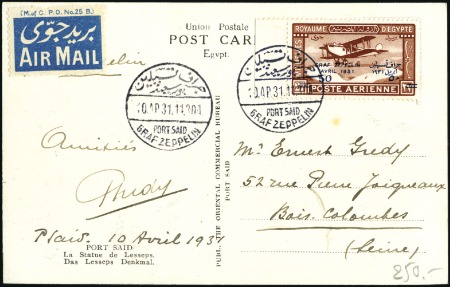 (M. of C. P. O. No. 25 B.)
بريد جوى
AIR MAIL
Union Postale
POST CAR
Egypt.
ROYAUME D'EGYPTE
GRAF ZEPPELIN
AVRIL 1931
أبريل سنة ١٩٣١
50
POSTE AERIENNE
جراف تسبلين
بورسعيد
10.AP.31.11
PORT SAID
GRAF ZEPPELIN
جراف تسبلين
بورسعيد
10.AP.31.11
PORT SAID
GRAF ZEPPELIN
Amitiés
Psaid. 10 Avril 1931
PORT SAID.
La Statue de Lesseps.
Das Lesseps Denkmal.
PUBL. THE ORIENTAL COMMERCIAL BUREAU
PORT SAID
Mr Ernest Gredy
52 rue Pierre Joigneaux
Bois-Colombes
(Seine)
250.-